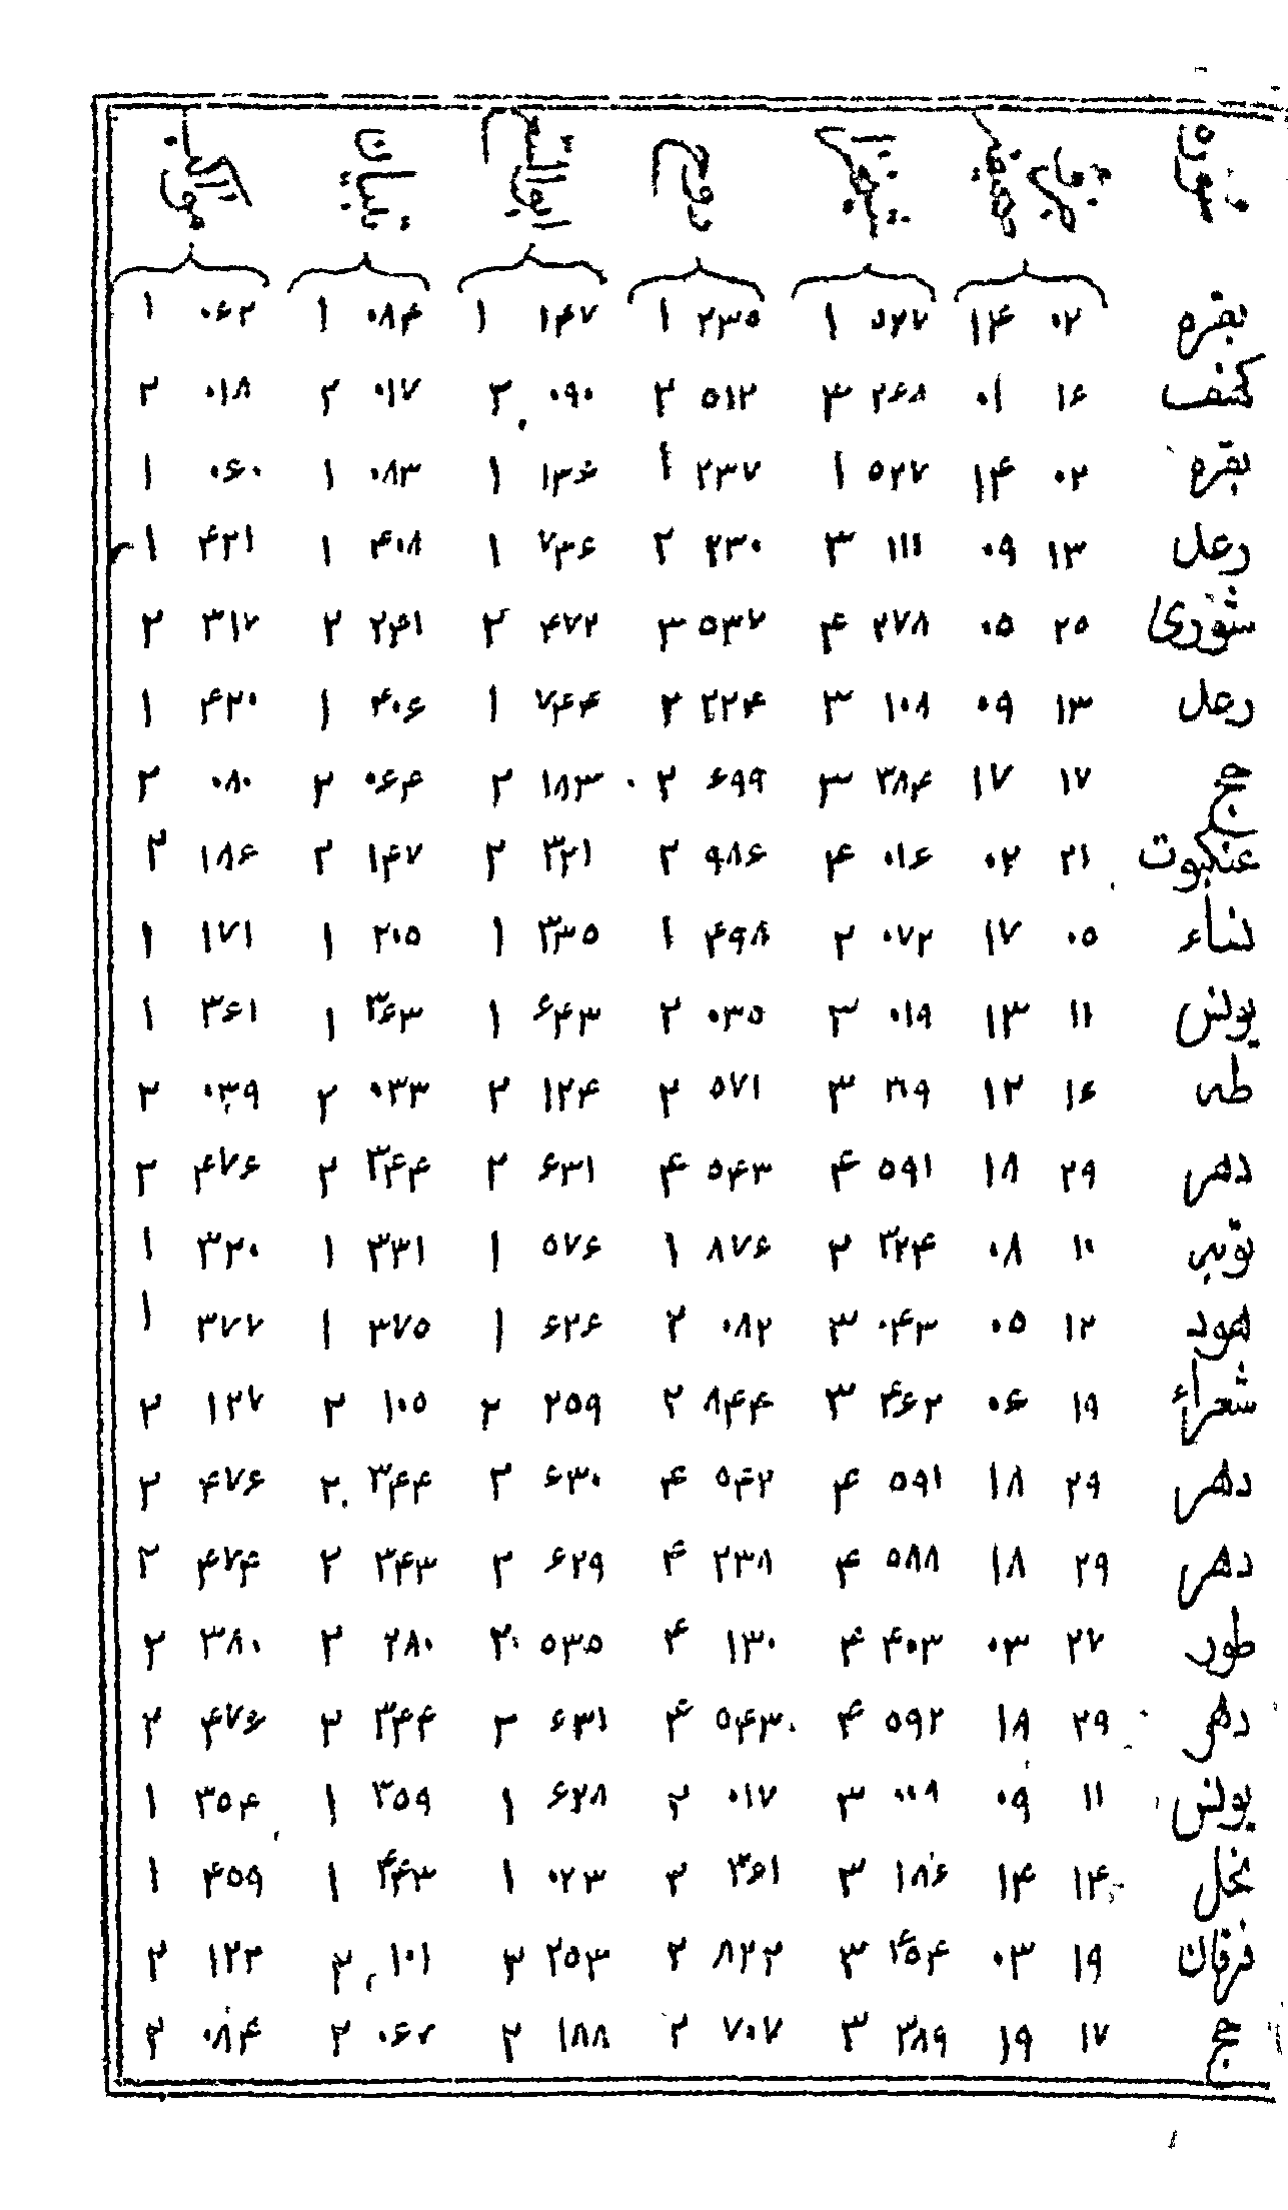 بقره ۰۲ ۱۴ ۵۲۷ ۱ ۲۳۵ ۱ ۱۴۷ ۱ ۰۸۴ ۱ ۰۶۲ ۱
کهف ۱۶ ۰۱ ۲۶۸ ۳ ۵۱۲ ۲ ۰۹۰ ۲ ۰۱۷ ۲ ۰۱۸ ۲
بقره ۰۲ ۱۴ ۵۲۷ ۱ ۲۳۷ ۱ ۱۳۶ ۱ ۰۸۳ ۱ ۰۶۰ ۱
رعد ۱۳ ۰۹ ۱۱۱ ۳ ۲۳۰ ۲ ۷۳۶ ۱ ۴۰۸ ۱ ۴۲۱ ۱
شوری ۲۵ ۰۵ ۲۷۸ ۴ ۵۳۷ ۳ ۴۷۲ ۲ ۲۴۱ ۲ ۳۱۷ ۲
رعد ۱۳ ۰۹ ۱۰۸ ۳ ۲۲۴ ۲ ۷۴۴ ۱ ۴۰۶ ۱ ۴۲۰ ۱
حج ۱۷ ۱۷ ۳۸۴ ۳ ۶۹۹ ۲ ۱۸۳ ۲ ۰۶۴ ۲ ۰۸۰ ۲
عنکبوت ۲۱ ۰۲ ۰۱۶ ۴ ۹۸۶ ۲ ۳۲۱ ۲ ۱۴۷ ۲ ۱۸۶ ۲
نساء ۰۵ ۱۷ ۰۷۲ ۲ ۴۹۸ ۱ ۳۳۵ ۱ ۲۰۵ ۱ ۱۷۱ ۱
یونس ۱۱ ۱۳ ۰۱۹ ۳ ۰۳۵ ۲ ۶۴۳ ۱ ۳۶۳ ۱ ۳۶۱ ۱
طه ۱۶ ۱۲ ۳ ۵۷۱ ۲ ۱۲۴ ۲ ۰۳۳ ۲ ۰۳۹ ۲
دهر ۲۹ ۱۸ ۵۹۱ ۴ ۵۴۳ ۴ ۶۳۱ ۲ ۳۴۴ ۲ ۴۷۶ ۲
توبه ۱۰ ۰۸ ۳۲۴ ۲ ۸۷۶ ۱ ۵۷۶ ۱ ۳۳۱ ۱ ۳۲۰ ۱
هود ۱۲ ۰۵ ۰۴۳ ۳ ۰۸۲ ۲ ۶۲۶ ۱ ۳۷۵ ۱ ۳۷۷ ۱
شعراء ۱۹ ۰۶ ۴۶۲ ۳ ۸۴۴ ۲ ۲۵۹ ۲ ۱۰۵ ۲ ۱۲۷ ۲
دهر ۲۹ ۱۸ ۵۹۱ ۴ ۵۴۲ ۴ ۶۳۰ ۲ ۳۴۴ ۲ ۴۷۶ ۲
دهر ۲۹ ۱۸ ۵۸۸ ۴ ۲۳۸ ۴ ۶۲۹ ۲ ۳۴۳ ۲ ۴۷۴ ۲
طور ۲۷ ۰۳ ۴۰۳ ۴ ۱۳۰ ۴ ۵۳۵ ۲ ۲۸۰ ۲ ۳۸۰ ۲
دهر ۲۹ ۱۸ ۵۹۲ ۴ ۵۴۳ ۴ ۶۳۱ ۲ ۳۴۴ ۲ ۴۷۶ ۲
یونس ۱۱ ۰۹ ۰۰۹ ۳ ۰۱۷ ۲ ۶۲۸ ۱ ۳۵۹ ۱ ۳۵۴ ۱
نحل ۱۴ ۱۴ ۱۸۶ ۳ ۳۶۱ ۲ ۰۲۳ ۱ ۴۴۳ ۱ ۴۵۹ ۱
فرقان ۱۹ ۰۳ ۴۵۴ ۳ ۸۲۲ ۲ ۲۵۳ ۲ ۱۰۱ ۲ ۱۲۳ ۲
حج ۱۷ ۱۹ ۳۸۹ ۳ ۷۰۷ ۲ ۱۸۸ ۲ ۰۶۷ ۲ ۰۸۴ ۲